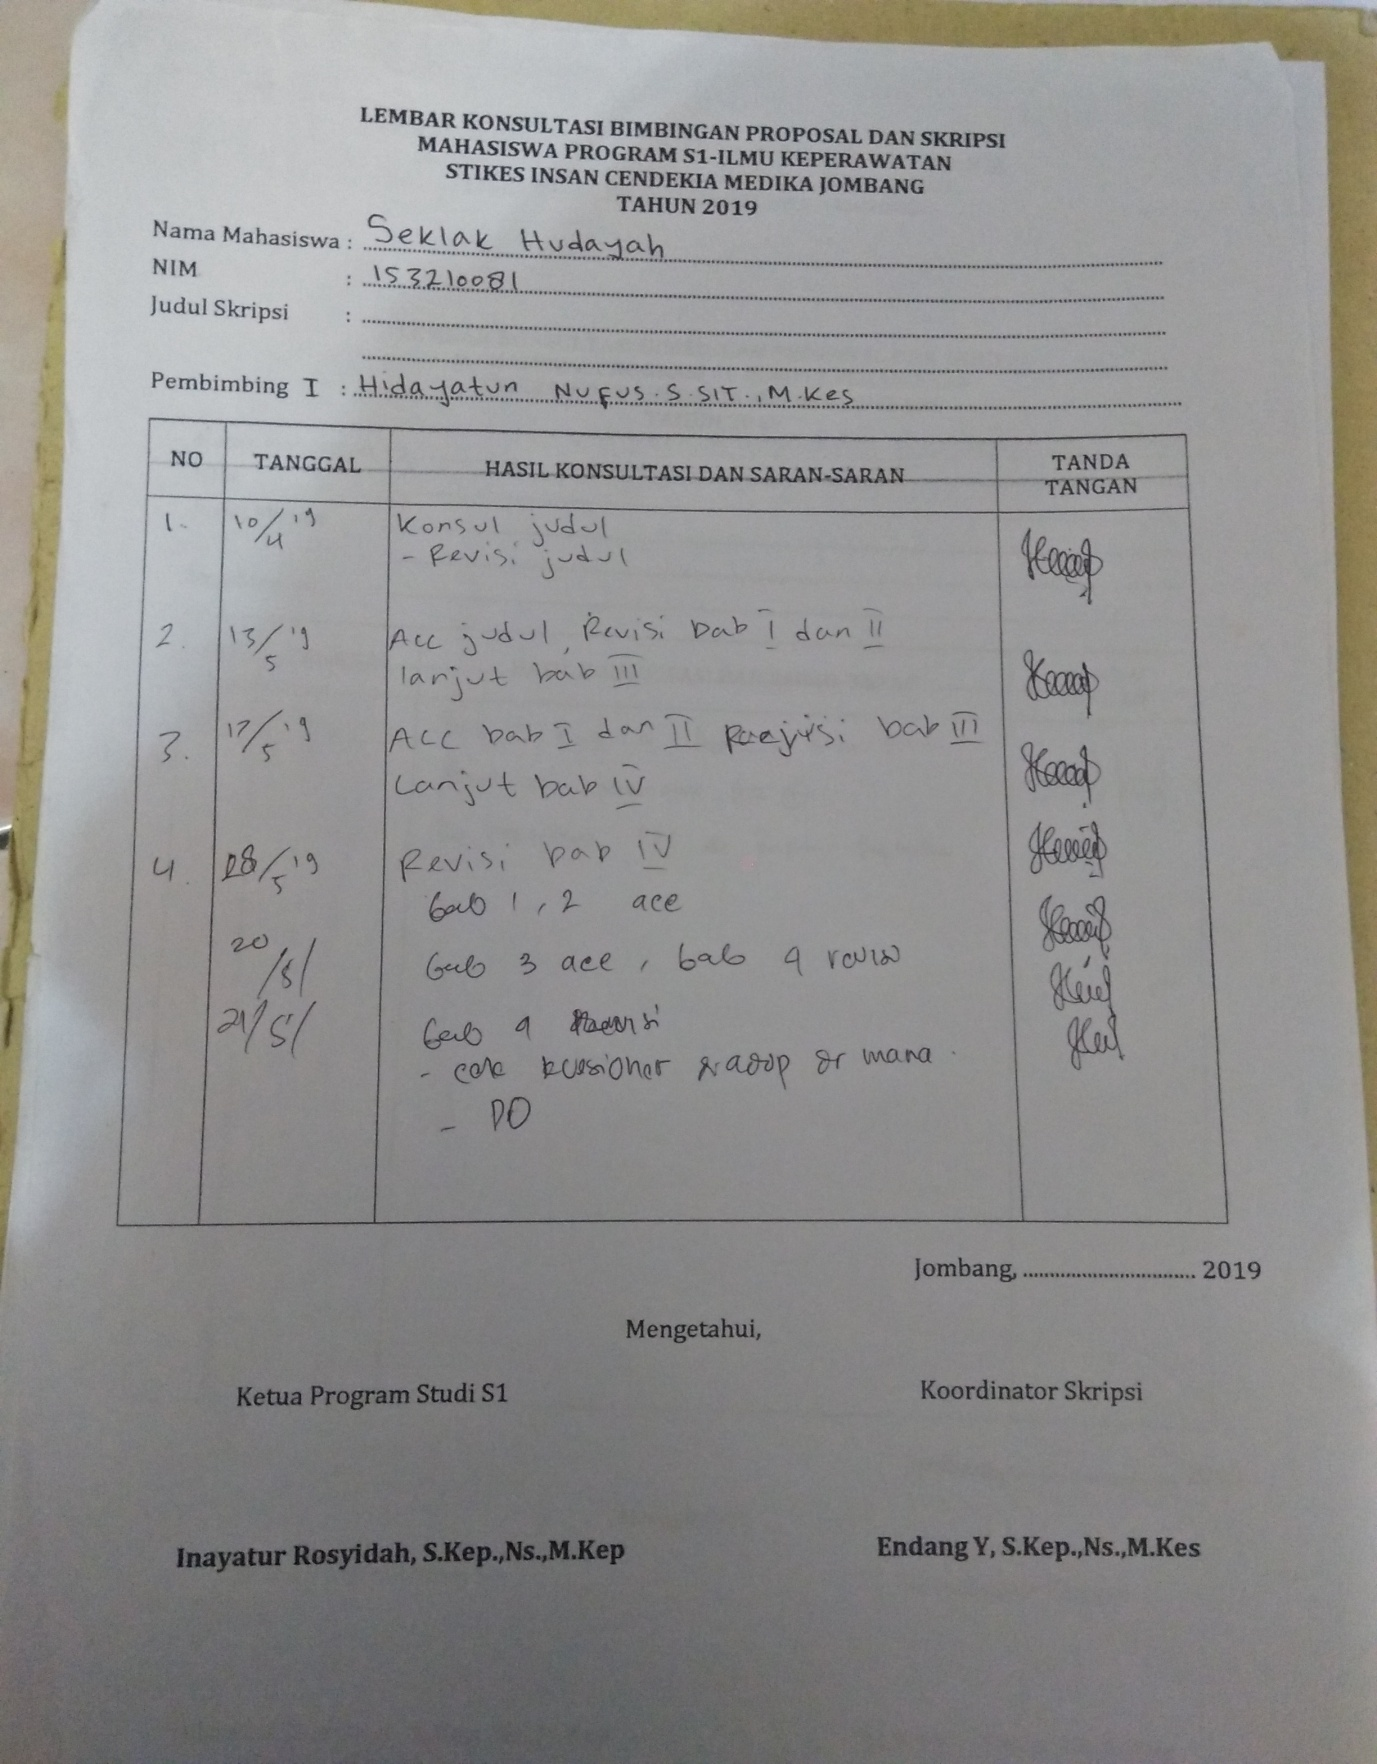 LEMBAR KONSULTASI BIMBINGAN PROPOSAL DAN SKRIPSI
MAHASISWA PROGRAM S1-ILMU KEPERAWATAN
STIKES INSAN CENDEKIA MEDIKA JOMBANG
TAHUN 2019
Nama Mahasiswa : Seklak Hudayah
NIM : 153210081
Judul Skripsi :
Pembimbing I : Hidayatun Nufus. S.SIT., M.Kes
NO TANGGAL HASIL KONSULTASI DAN SARAN-SARAN TANDA TANGAN
1. 10/4 '19 Konsul judul
- Revisi judul
2. 13/5 '19 Acc judul, Revisi bab I dan II
lanjut bab III
3. 17/5 '19 Acc bab I dan II bab III
Lanjut bab IV
4. /5 '19 Revisi bab IV
bab 1, 2 acc
20/5/ bab 3 acc, bab 4 revisi
21/5/ bab 4
- cek kuesioner mana
- DO
Jombang, .............................. 2019
Mengetahui,
Ketua Program Studi S1 Koordinator Skripsi
Inayatur Rosyidah, S.Kep.,Ns.,M.Kep Endang Y, S.Kep.,Ns.,M.Kes